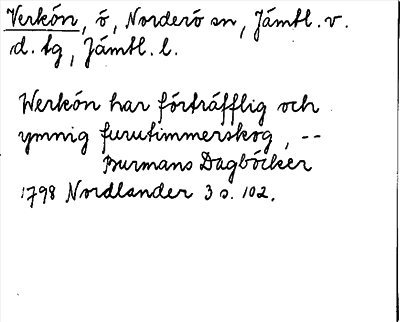 Verkön, ö, Norderö sn, Jämtl. v.
d. tg, Jämtl. l.
Werkön har förträfflig och
ymnig furutimmerskog, --
Burmans Dagböcker
1798 Nordlander 3 s. 102.